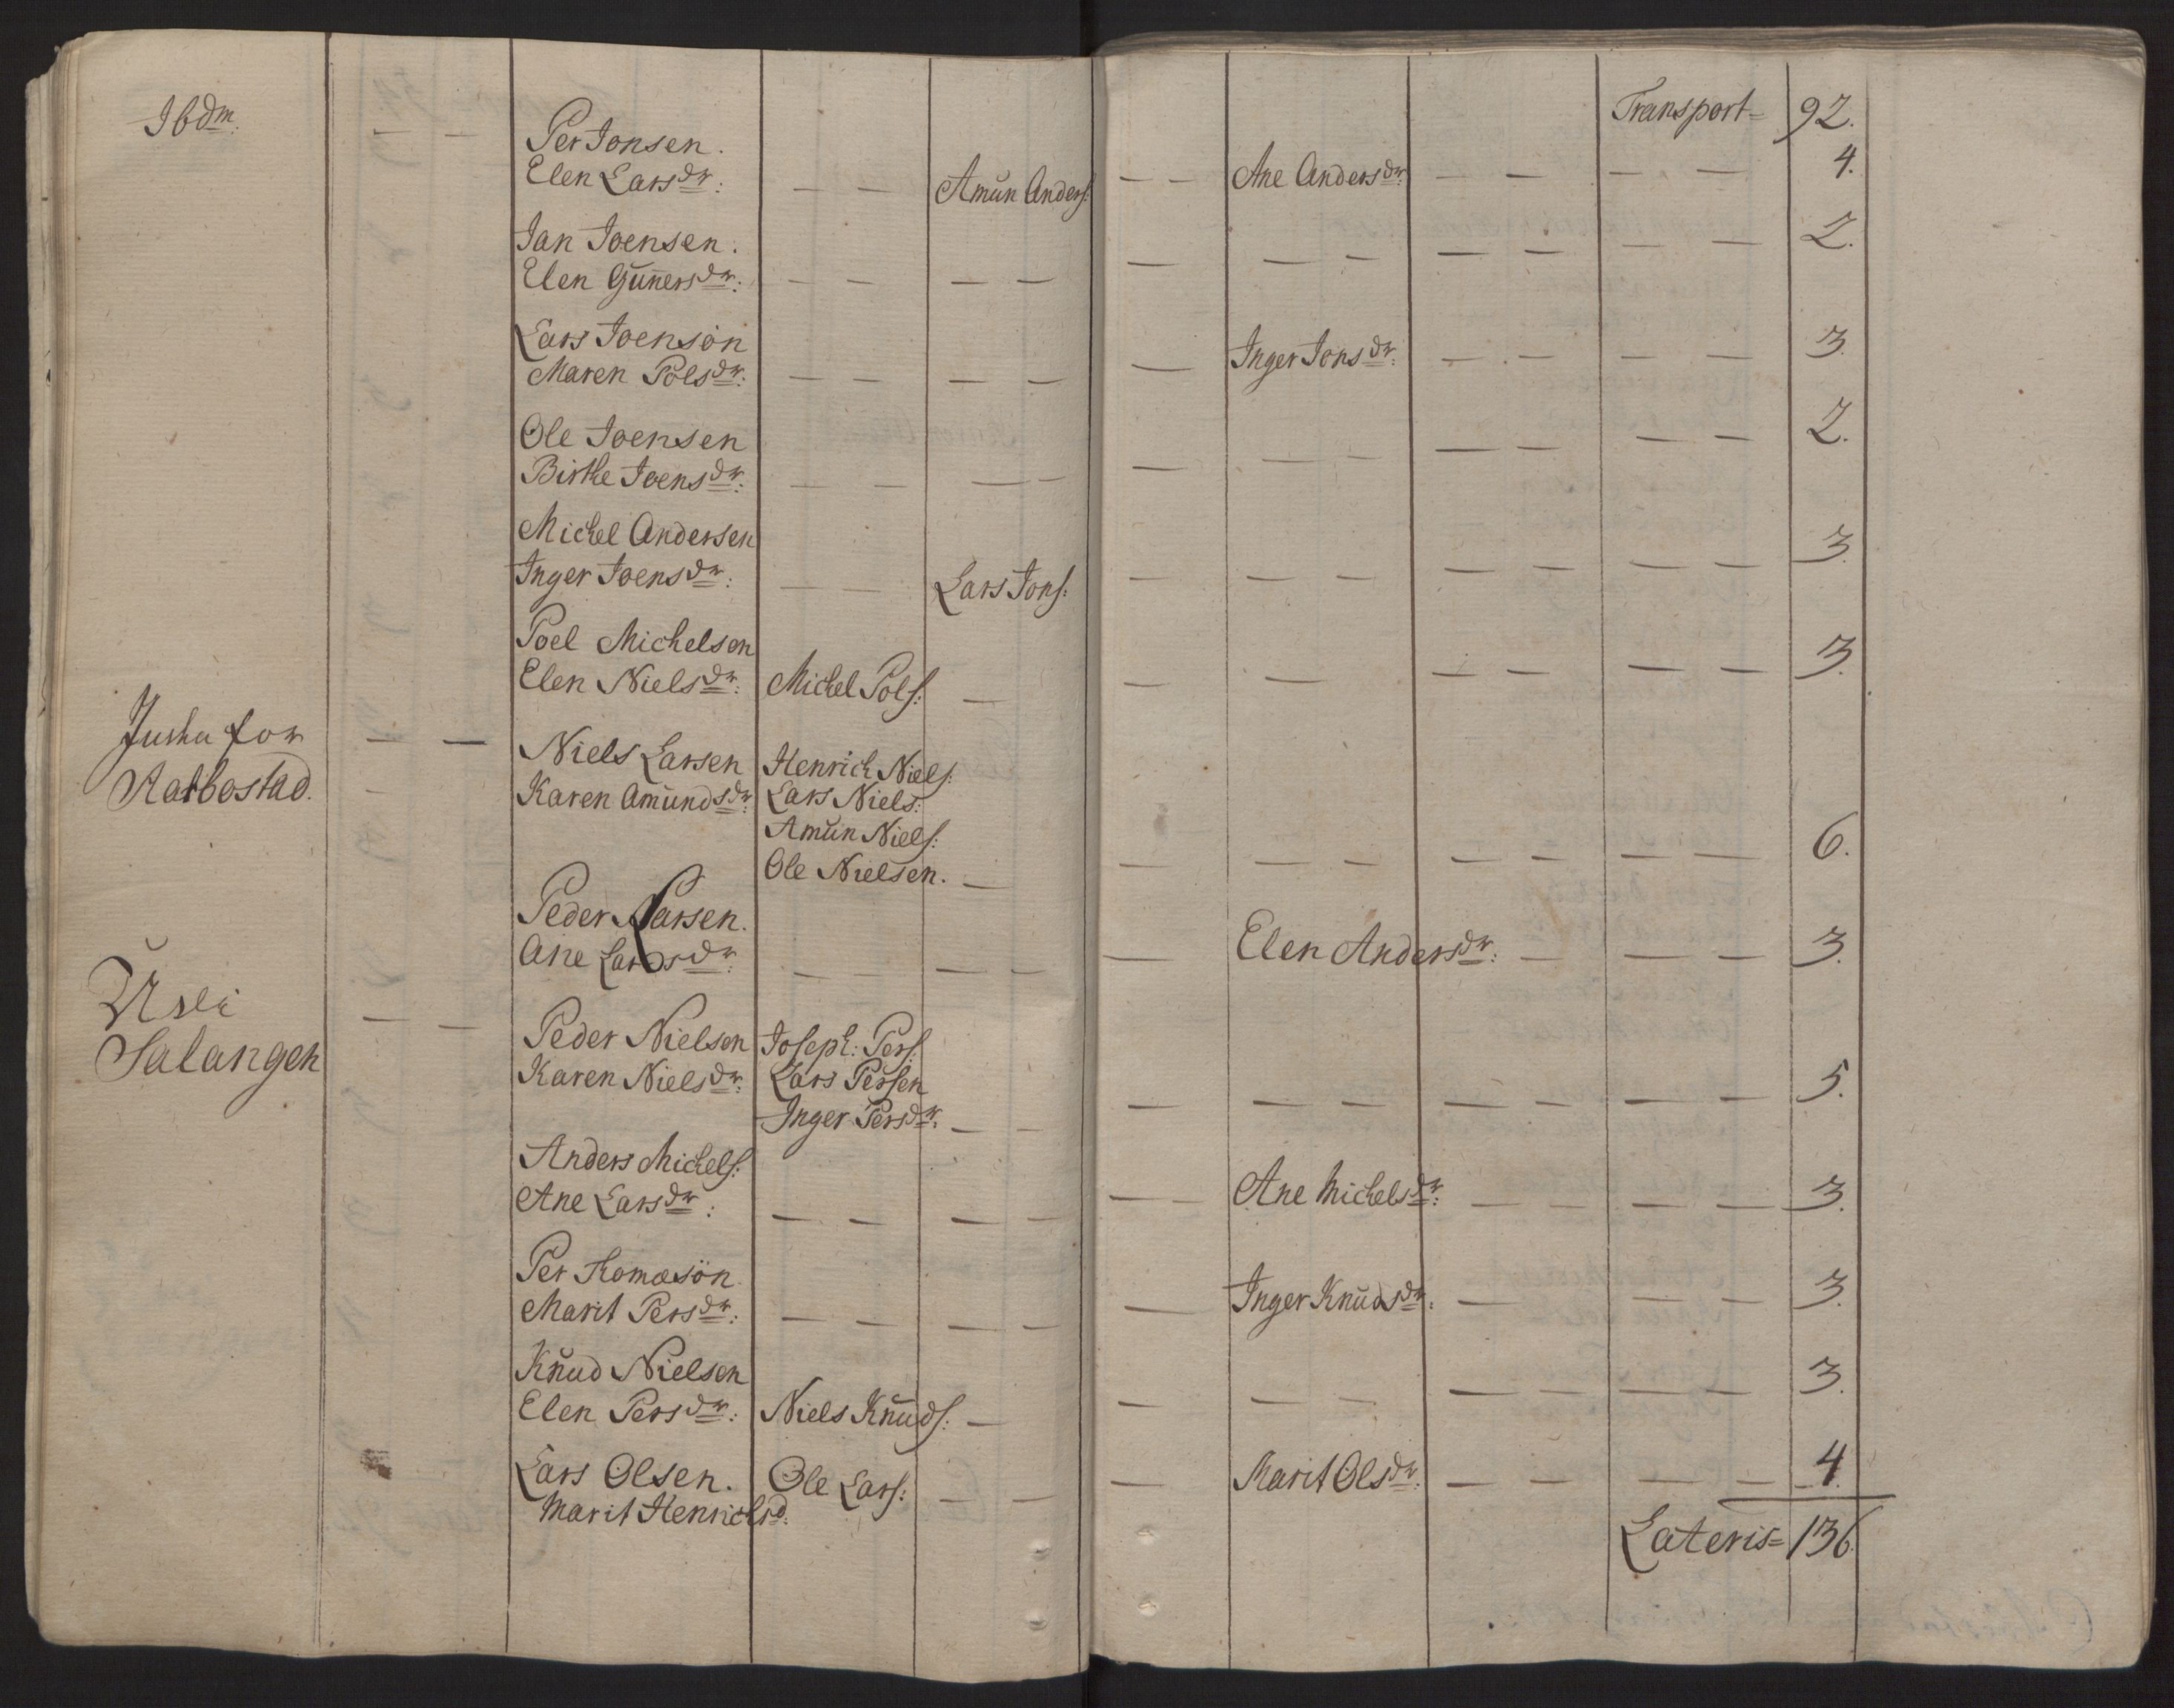 Transport= 92.
Ibdm:
Per Jonsen.
Elen Larsdr: — — Amŭn Anders: — — Ane Andersdr: — — — — 4.
Jan Joensen.
Elen Gun̄ersdr: — — — — — — — — — — — 2.
Lars Joensøn
Maren Polsdr: — — — — — Inger Jonsdr: — — — — 3.
Ole Joensen
Birthe Joensdr: — — — — — — — — — — — 2.
Michel Andersen
Inger Joensdr: — — Lars Jons: — — — — — — — 3.
Poel Michelsen
Elen Nielsdr: Michel Pols: — — — — — — — 3.
Niels Larsen Henrich Niels:
Karen Amundsdr: Lars Niels:
Amŭn Niels:
Ole Nielsen. — — — — — — — — 6.
Peder Larsen.
Ane Larsdr: — — — — — Elen Andersdr: — — — 3.
Salangen
Peder Nielsen Joseph: Pers:
Karen Nielsdr: Lars Persen
Inger Persdr: — — — — — — — — — 5.
Anders Michels:
Ane Larsdr: — — — — — — Ane Michelsdr: — — — — 3.
Per Thomæsøn
Marit Persdr: — — — — — Inger Knŭdsdr: — — — 3.
Knŭd Nielsen
Elen Persdr: Niels Knŭds: — — — — — — — — 3.
Lars Olsen. Ole Lars: — — — Marit Olsdr: — — — — 4.
Marit Henrichsd:
Lateris= 136.